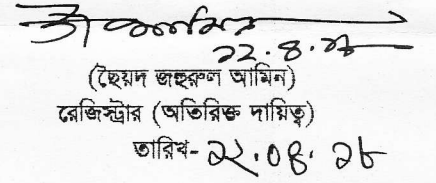 ২২.৪.২৮
(ছৈয়দ জহুরুল আমিন)
রেজিস্ট্রার (অতিরিক্ত দায়িত্ব)
তারিখ- ২২.০৪.২৮